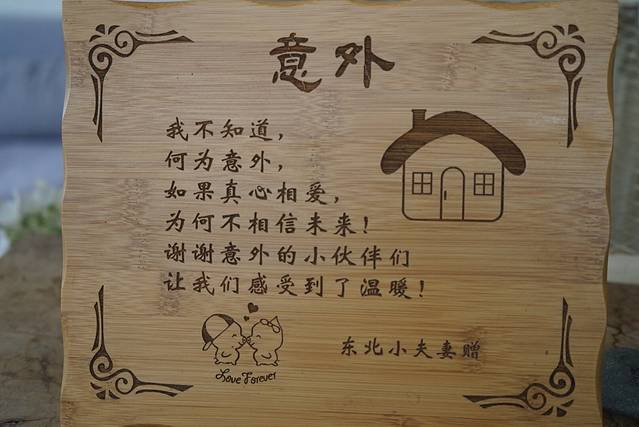 意外
我不知道，
何为意外，
如果真心相爱，
为何不相信未来！
谢谢意外的小伙伴们
让我们感受到了温暖！
Love Forever
东北小夫妻赠